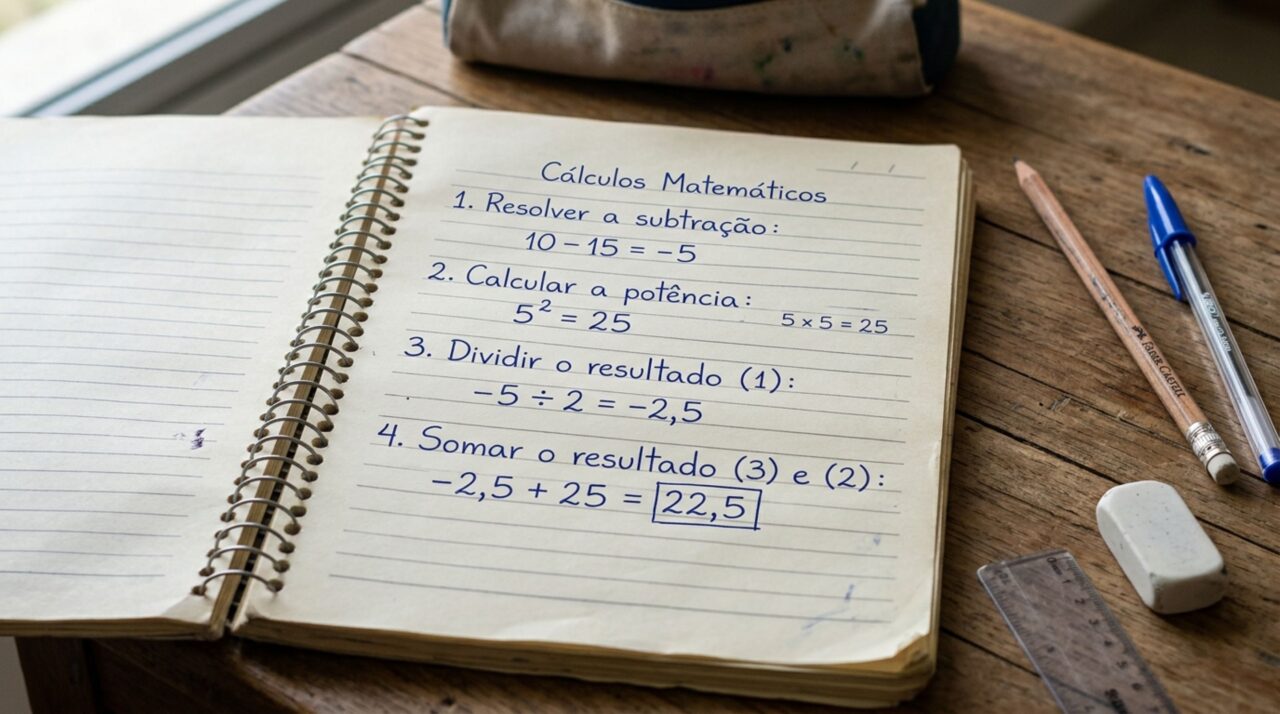 Cálculos Matemáticos
1. Resolver a subtração:
10 − 15 = −5
2. Calcular a potência:
5² = 25
5 x 5 = 25
3. Dividir o resultado (1):
−5 ÷ 2 = −2,5
4. Somar o resultado (3) e (2):
−2,5 + 25 = 22,5